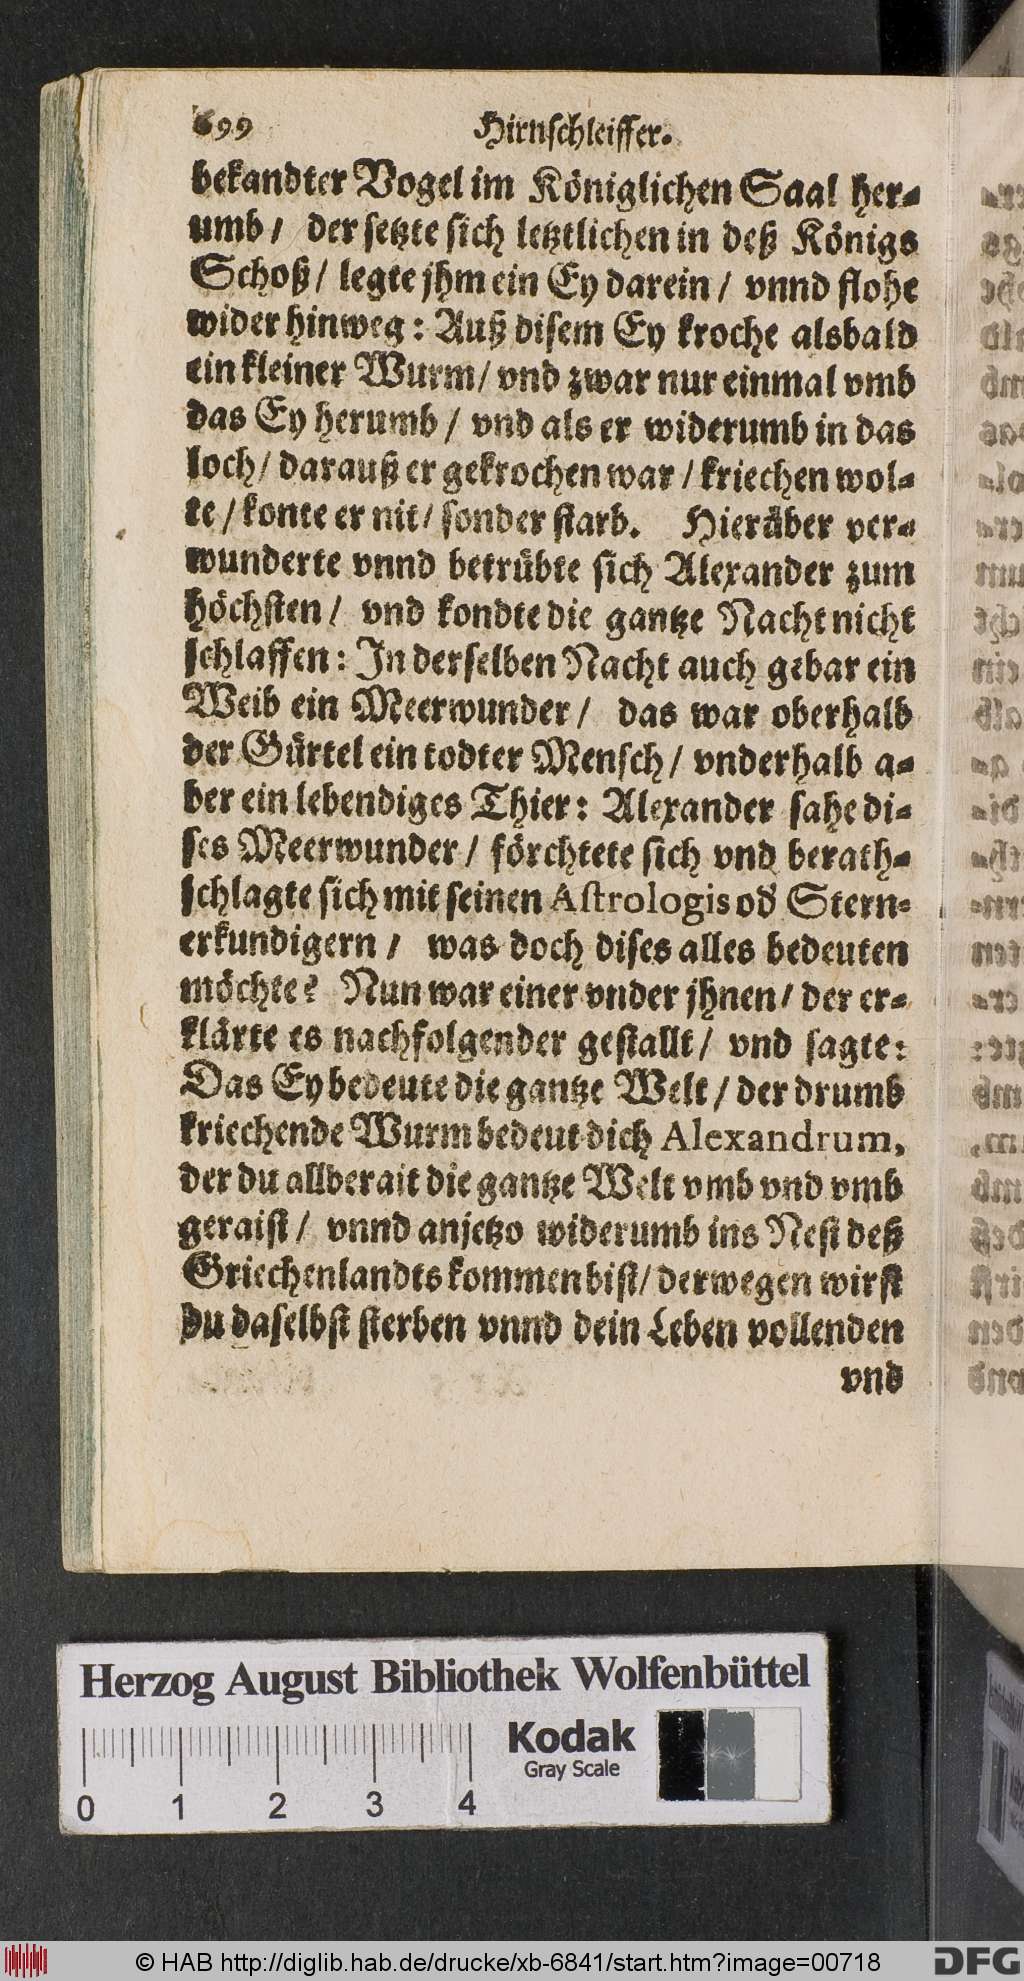 699 Hirnschleiffer.
bekandter Vogel im Königlichen Saal her-
umb / der setzte sich letztlichen in deß Königs
Schoß / legte jhm ein Ey darein / vnnd flohe
wider hinweg: Auß disem Ey kroche alsbald
ein kleiner Wurm / vnd zwar nur einmal vmb
das Ey herumb / vnd als er widerumb in das
loch / darauß er gekrochen war / kriechen wol-
te / konte er nit / sonder starb. Hierüber ver-
wunderte vnnd betrübte sich Alexander zum
höchsten / vnd kondte die gantze Nacht nicht
schlaffen: In derselben Nacht auch gebar ein
Weib ein Meerwunder / das war oberhalb
der Gürtel ein todter Mensch / vnderhalb a-
ber ein lebendiges Thier: Alexander sahe di-
ses Meerwunder / förchtete sich vnd berath-
schlagte sich mit seinen Astrologis od̄ Stern-
erkundigern / was doch dises alles bedeuten
möchte? Nun war einer vnder jhnen / der er-
klärte es nachfolgender gestallt / vnd sagte:
Das Ey bedeute die gantze Welt / der drumb
kriechende Wurm bedeut dich Alexandrum,
der du allberait die gantze Welt vmb vnd vmb
geraist / vnnd anjetzo widerumb ins Nest deß
Griechenlandts kommen bist / derwegen wirst
du daselbst sterben vnnd dein Leben vollenden
vnd
Herzog August Bibliothek Wolfenbüttel
Kodak
Gray Scale
0 1 2 3 4
© HAB http://diglib.hab.de/drucke/xb-6841/start.htm?image=00718
DFG